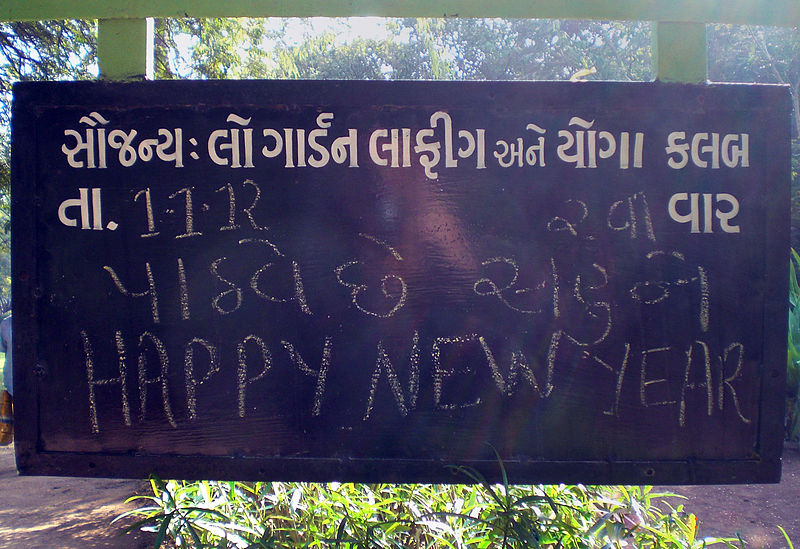 સૌજન્ય: લૉ ગાર્ડન લાફીંગ અને યૉગા કલબ
તા. 1.1.12 રવી વાર
પાઠવે છે સહુને
HAPPY NEW YEAR